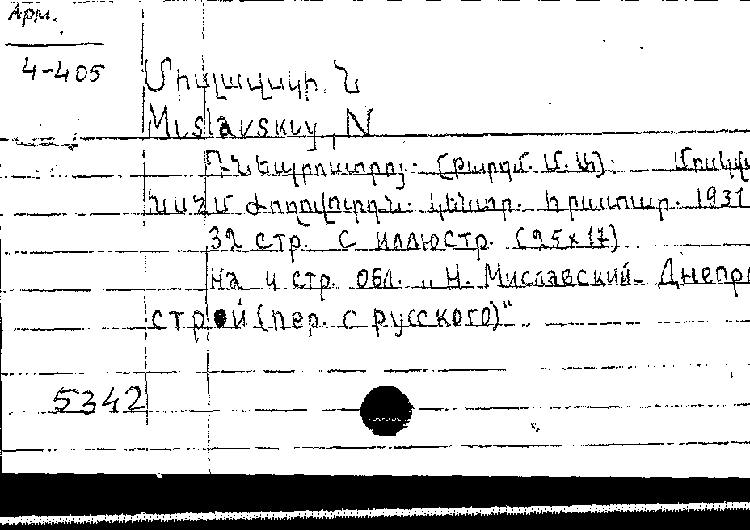 Арм.
4-405
Միսլավսկի. Ն
Mislavskiy, N
Դնեպրոստրոյ. (թարգմ. Մ. Ա): Մոսկվա
ԽՍՀՄ ժողովուրդն. կենտր. հրատար. 1931
32 стр. с иллюстр. (25×17)
на 4 стр. обл. „Н. Миславский- Днепро
строй (пер. с русского)"
5342